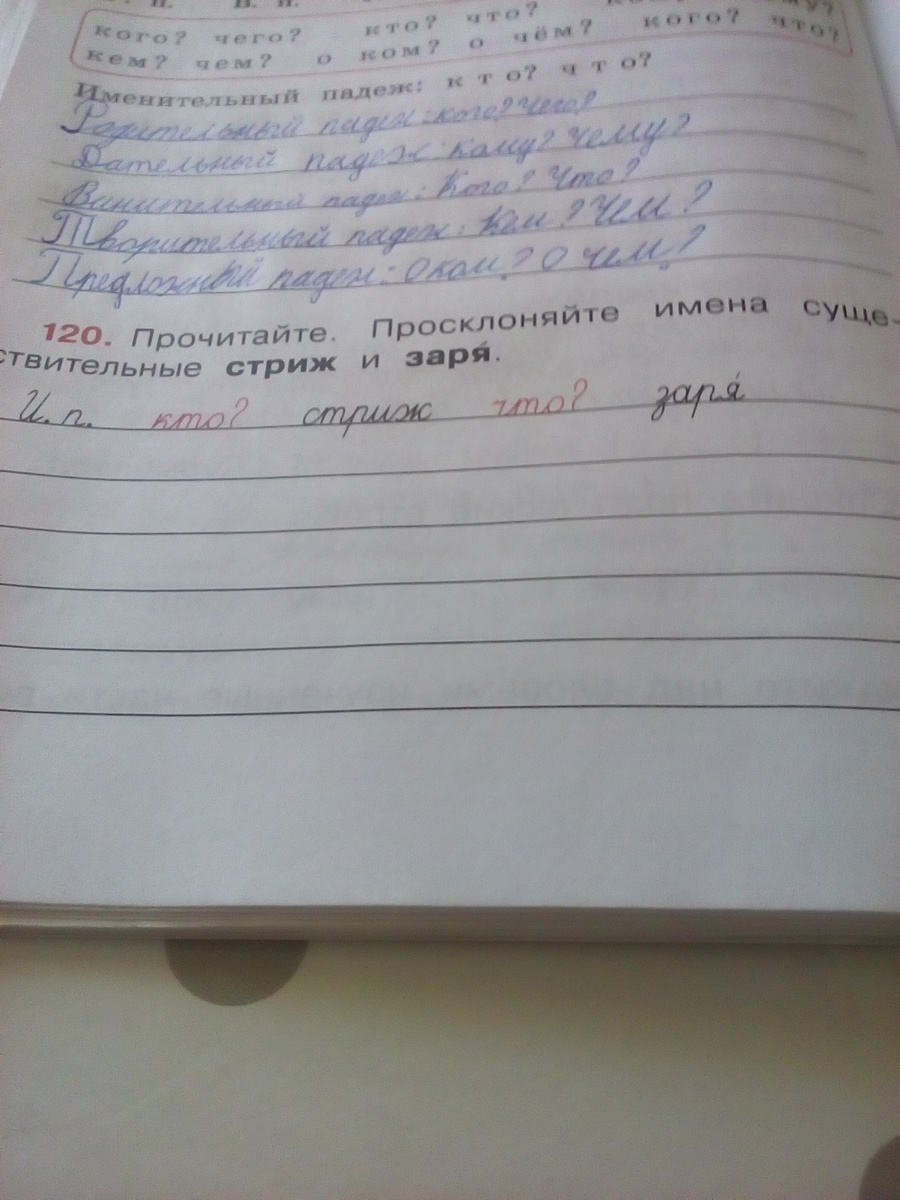 п. В. п.
кого? чего? кто? что?
кем? чем? о ком? о чём? кого? что?
Именительный падеж: кто? что?
Родительный падеж: кого? Чего?
Дательный падеж: кому? Чему?
Винительный падеж: Кого? Что?
Творительный падеж: Кем? Чем?
Предложный падеж: О ком? О чем?
120. Прочитайте. Просклоняйте имена суще-
ствительные стриж и заря́.
И. п. кто? стриж что? заря́